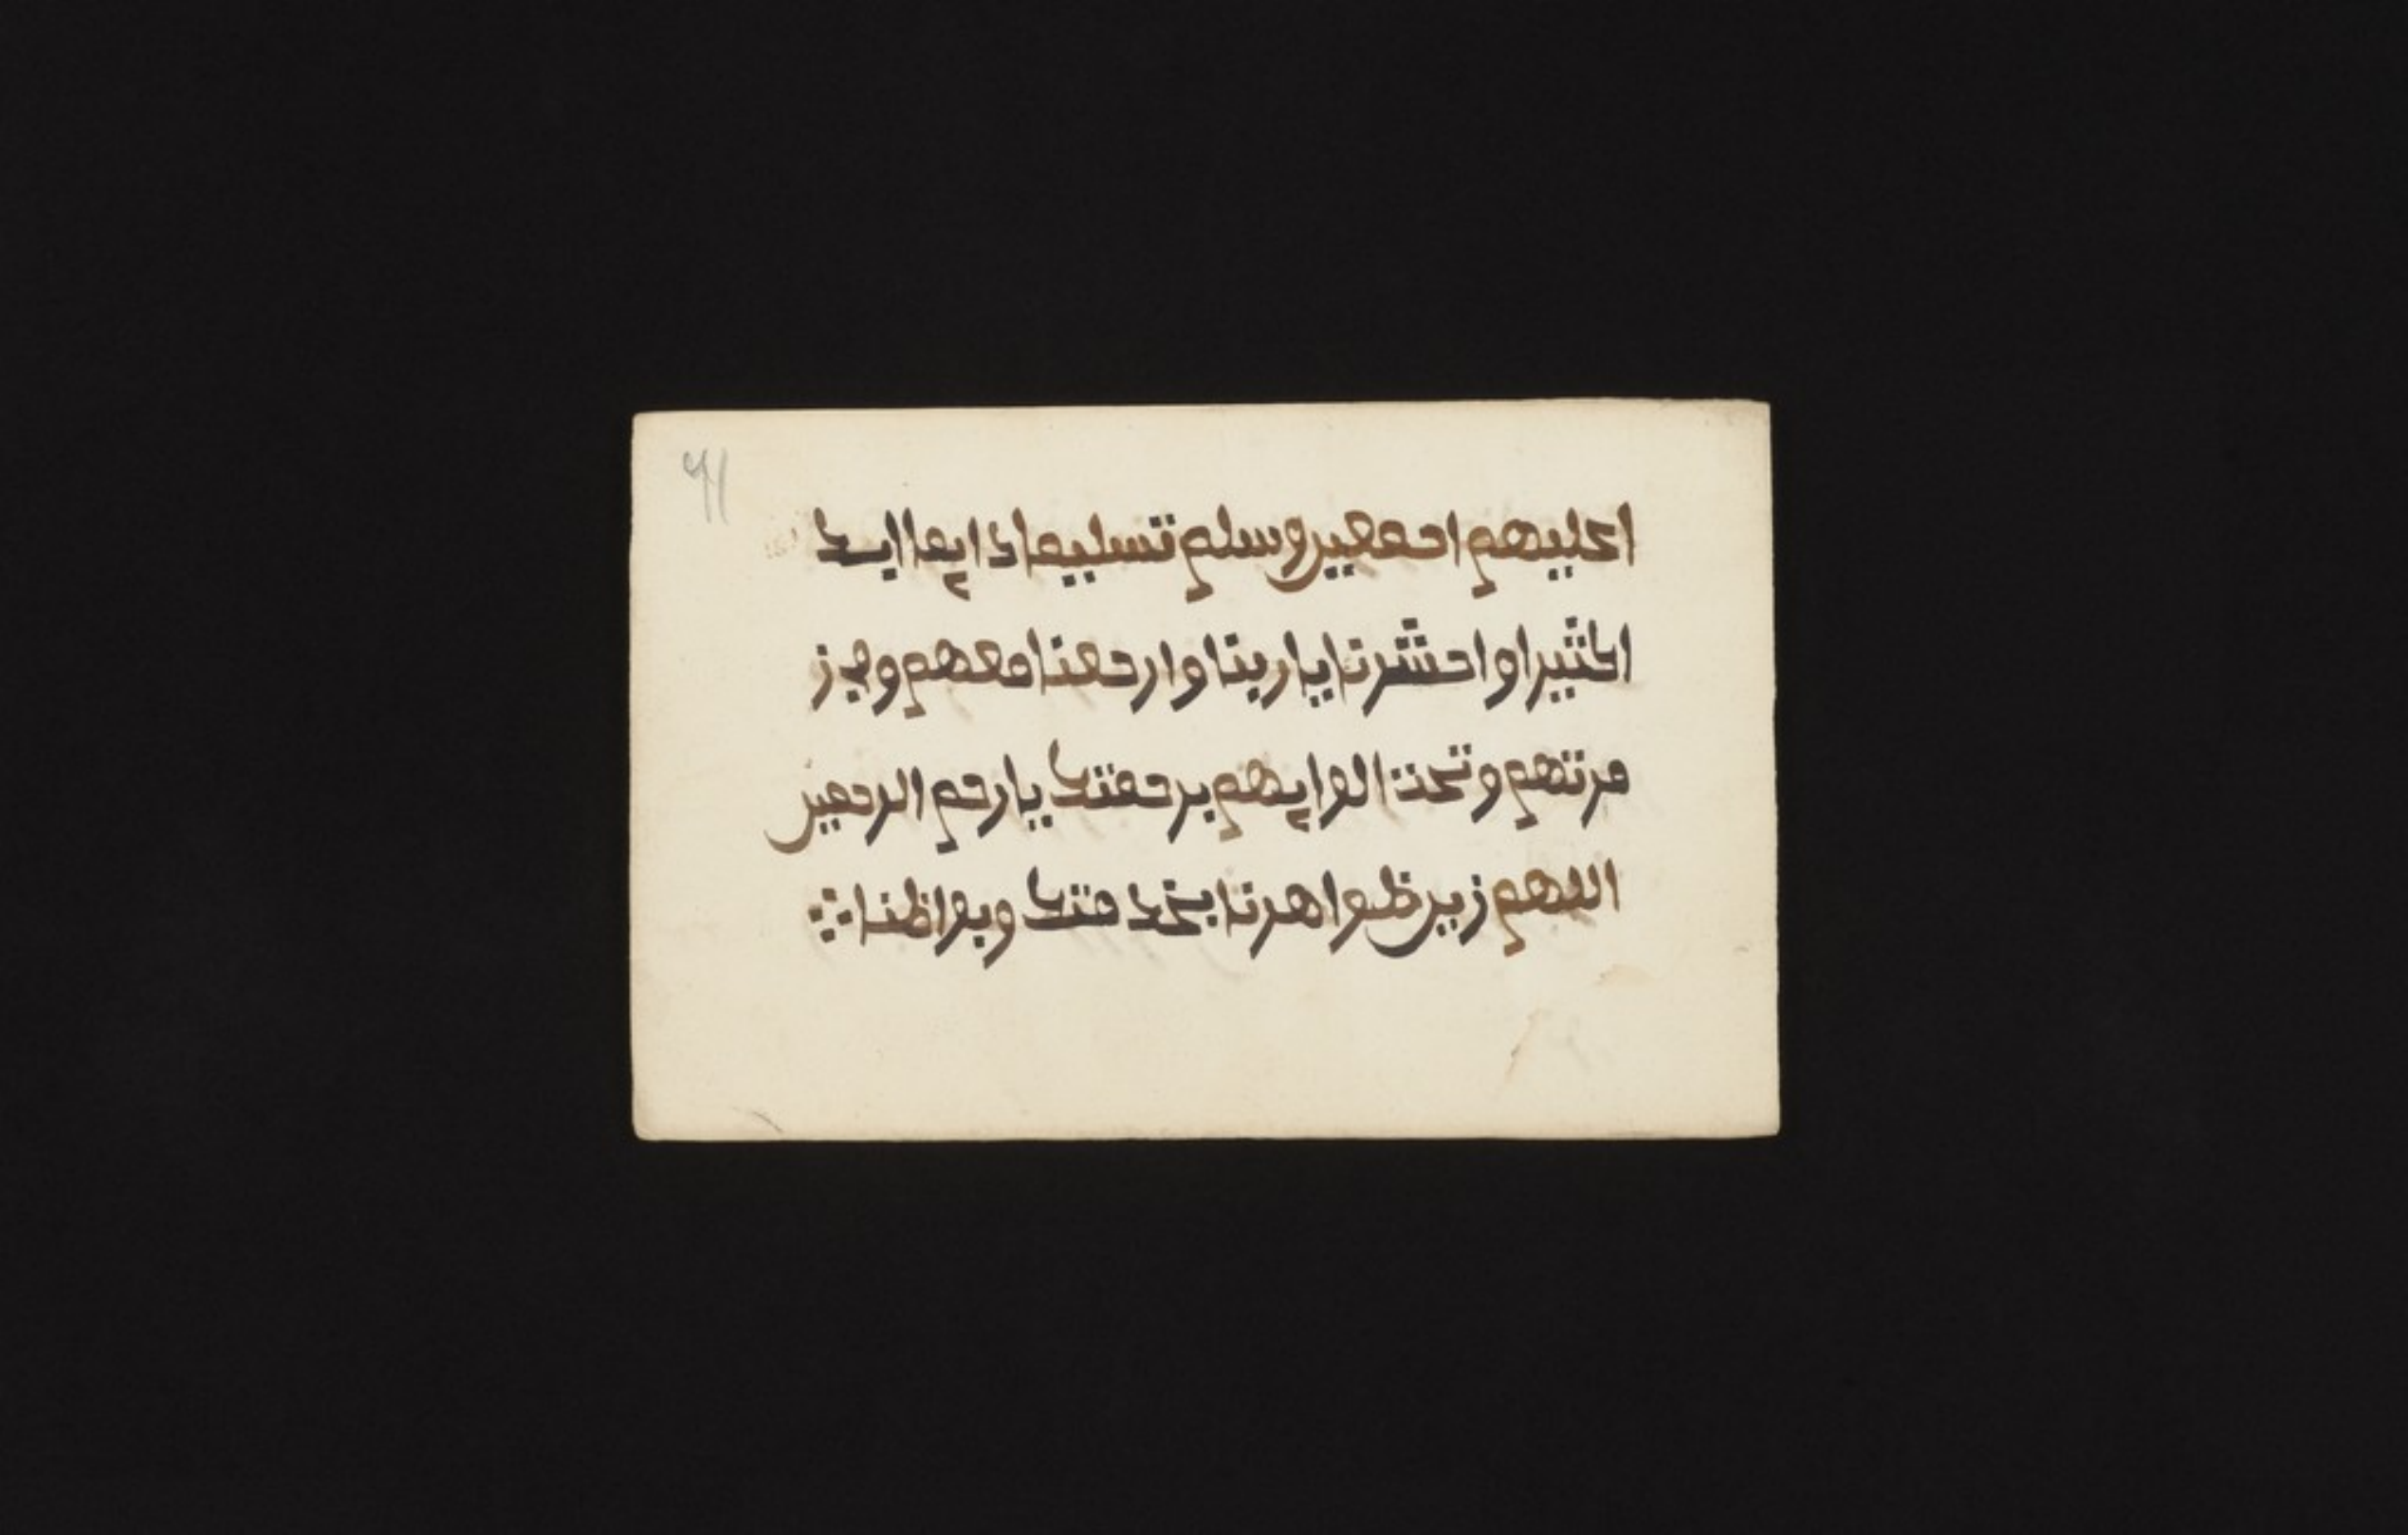 اعليهم اجمعين وسلم تسليما دايما ابدا
اكثيرا واحشرنا يا ربنا وارجعنا معهم وفي ز
مرتهم وتحت الوايهم برحمتك يا ارحم الرحمين
اللهم زين ظواهرنا بخدمتك وبواظنا